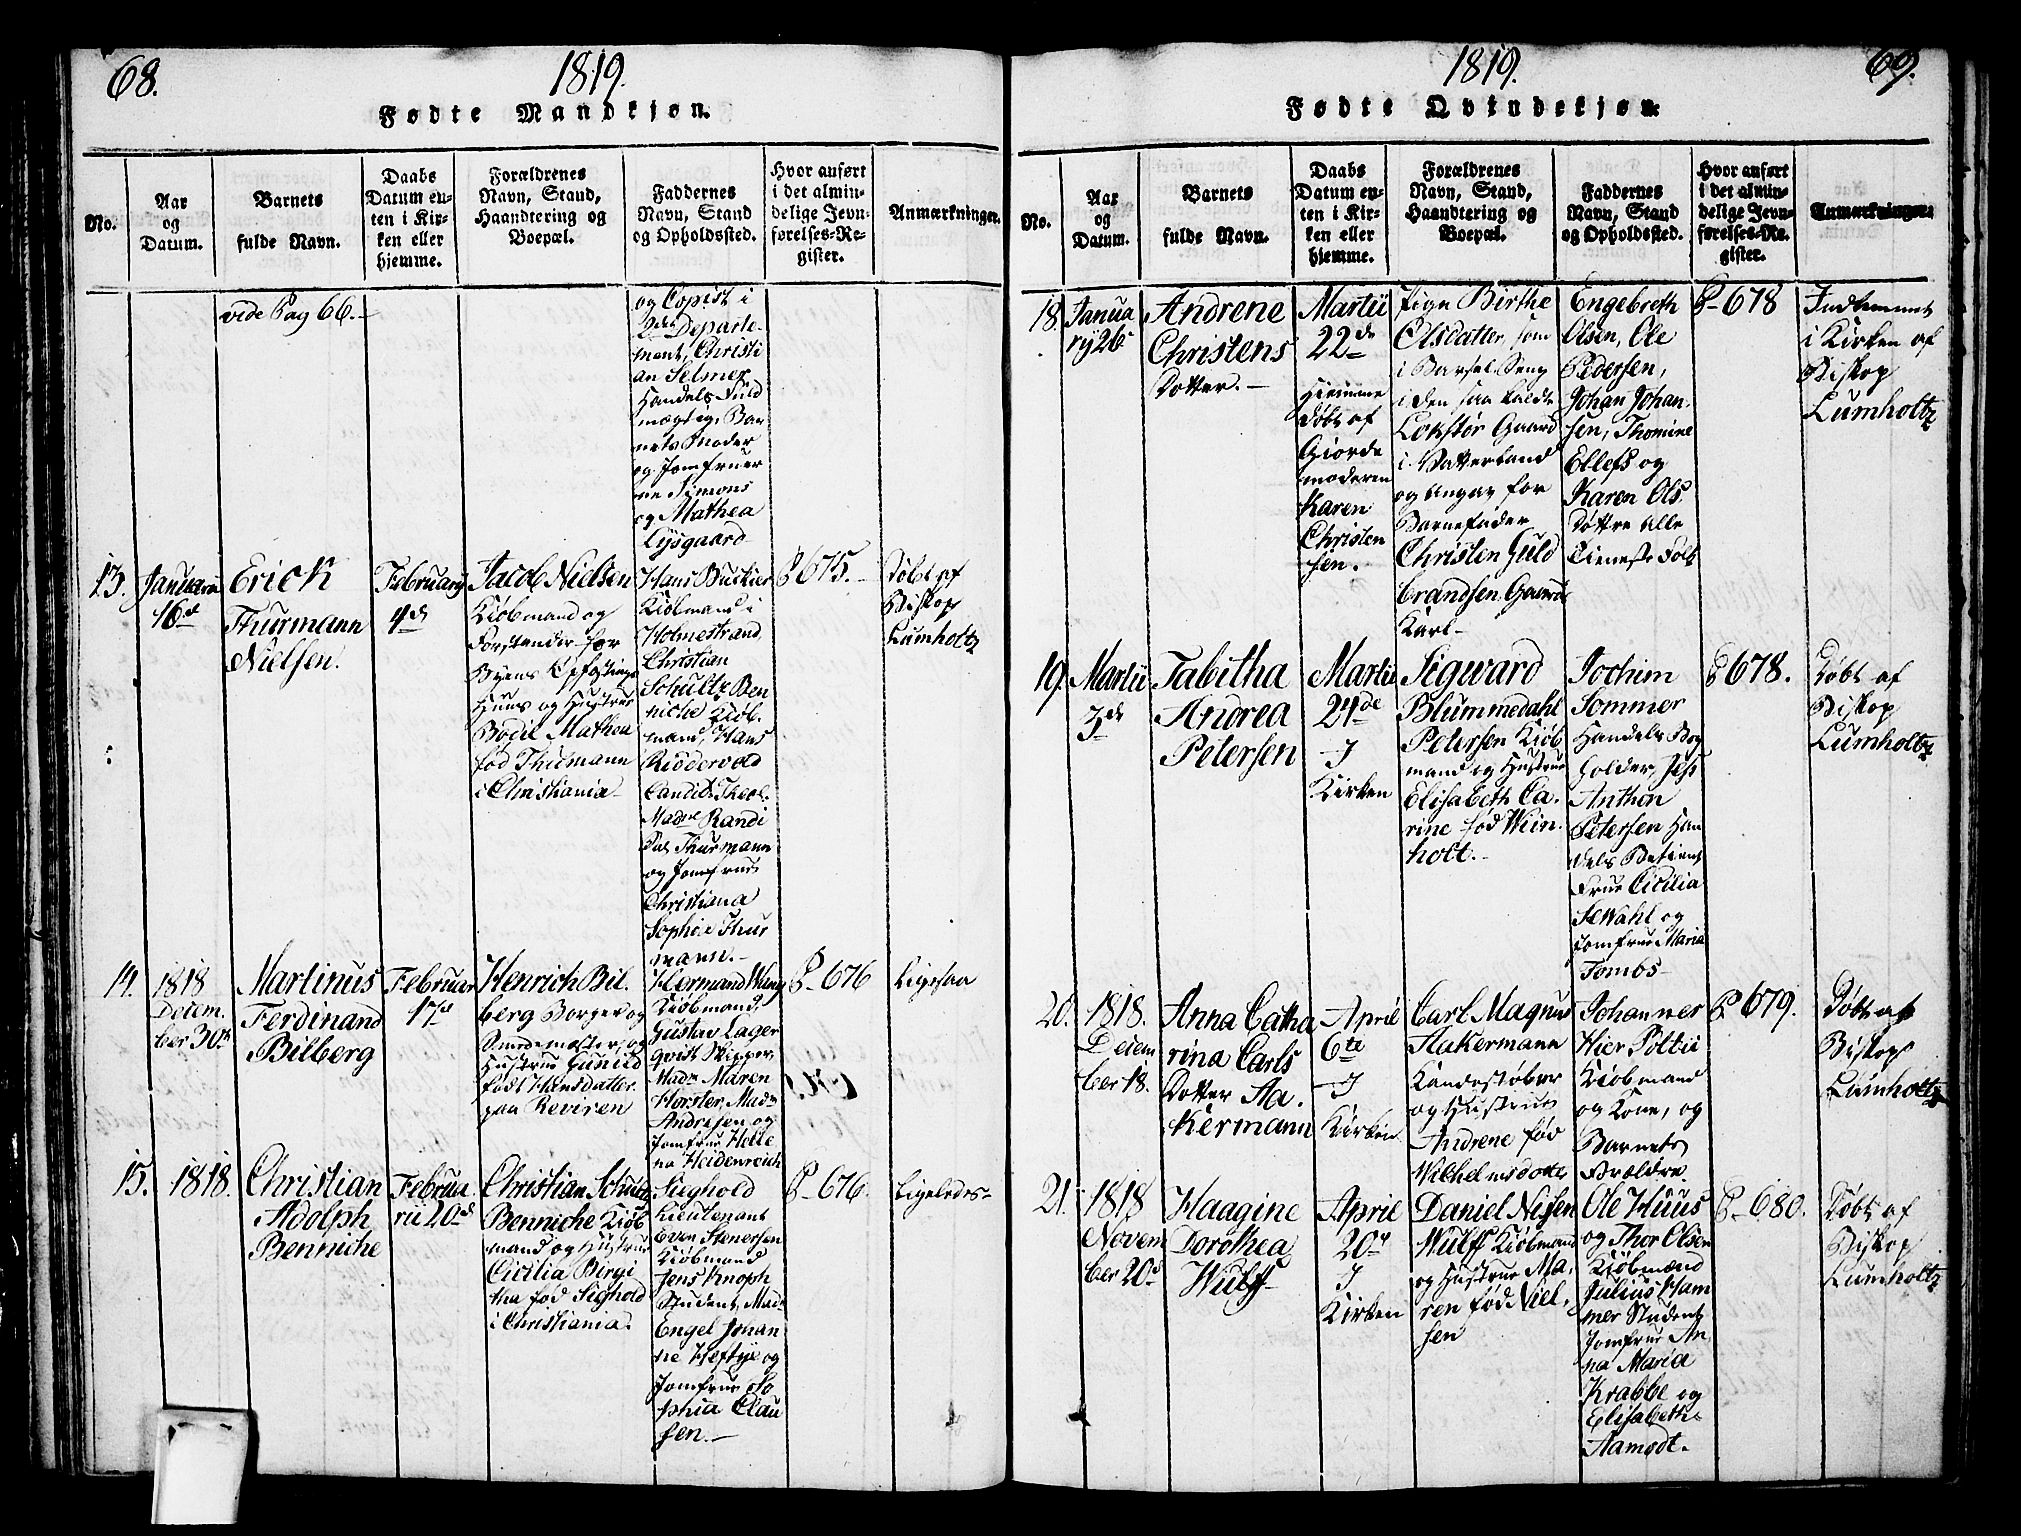 68.
1819.
Fødte Mandkjøn.
No.
Aar
og
Datum.
Barnets
fulde Navn.
Daabs
Datum en-
ten i Kir-
ken eller
hjemme.
Forældrenes
Navn, Stand,
Haandtering og
Boepæl.
Faddernes
Navn, Stand
og Opholdssted.
Hvor anført
i det almin-
delige Jevn-
førelses-Re-
gister.
Anmærkninger.
vide Pag 66.
og Copist i
2det Departe-
ment, Christi
an Selmer
Handels Fuld
mægtig, Bar
nets Moder
og Jomfruer
ne Simons
og Mathea
Lysgaard
13.
Januarii
16de
Erick
Thurmann
Nielsen.
February
4de
Jacob Nielsen
Kiøbmand og
Forstander for
Byens Opfostrings
Huus og Hustrue
Bodil Mathea
fød Thurmann
i Christiania
Hans Buskier
Kiøbmand i
Holmestrand,
Christian
Schultz Ben
niche Kiøb-
mand, Hans
Riddervold
Candid: Theol:
Madme Randi
Thurmann
og Jomfrue
Christiana
Sophie Thur
mann.
P 675.
Døbt af
Biskop
Lumholtz
14.
1818
Decem
ber 30te
Martinus
Ferdinand
Bilberg
Februar
17de
Henrich Bil-
berg Borger og
Smedemester, og
Hustrue Gunild
født Hansdatter
paa Reviren
Hermand Wung
Kiøbmand,
Gustav Lager
qvist Skipper
Madm Maren
Horster, Madm
Andresen og
Jomfrue Hele
na Heidenreich
P-676
Ligesaa
15.
1818.
Christian
Adolph
Benniche
Februa
rii 20de
Christian Schultz
Benniche Kiøb
mand og Hustrue
Cicilia Birgi
tha fød Sieghold
i Christiania.
Sieghold
Lieutenant
Even Stenersen
Kiøbmand
Jens Knoph
Student, Madm
Engel Johan
ne Heftye og
Jomfrue So
phia Clau
sen.
P-676.
Ligeledes-
69.
1819.
Fødte Qvindekjøn.
No.
Aar
og
Datum.
Barnets
fulde Navn.
Daabs
Datum en-
ten i Kir-
ken eller
hjemme.
Forældrenes
Navn, Stand,
Haandtering og
Boepæl.
Faddernes
Navn, Stand
og Opholdssted.
Hvor anført
i det almin-
delige Jevn-
førelses-Re-
gister.
Anmærkninger.
18.
Janua
ry 26
Andrene
Christens
Dotter.
Martii
22de
Hiemme
døbt af
Giorde
moderen
Karen
Christen
sen.
Pige Birthe
Olsdatter, som
i Barsel-Seng
i den saa kaldte
Lekstør Gaard
i Vatterland
og angav for
Barnefader
Christen Guld
brandsen Gaards
Karl
Engebreth
Olsen, Ole
Pedersen,
Johan Johan-
sen, Thomine
Ellefs og
Karen Ols
Døttre alle
Tieneste Folk
P-678
Indkommet
i Kirken af
Biskop
Lumholtz
19.
Martii
3de
Tabitha
Andrea
Petersen
Martii
24de
I
Kirken
Sigward
Blummedahl
Petersen Kiøb
mand og Hustrue
Elisabeth Ca-
rine fød Wein-
holt.
Jochim
Sommer
Handels Bog
holder, Jess
Anthon
Petersen Han
dels Betient
Frue Cicilia
Sewahl og
Jomfrue Maria
Tombs
P 678.
Døbt af
Biskop
Lumholtz
20.
1818.
Decem
ber 18.
Anna Catha
rina Carls
Dotter Aa-
kermann
April
6te
I
Kirken
Carl Magnus
Aakermann
Kandestøber
og Hustrue
Andrene fød
Wilhelmsdotter
Johannes
Hier Poltii
Kiøbmand
og Kone, og
Barnets
Forældre.
P 679.
Døbt af
Biskop
Lumholtz
21.
1818
Novem
ber 20de
Haagine
Dorothea
Wulff
April
20de
I
Kirken
Daniel Nissen
Wulff Kiøbmand
og Hustrue Ma-
ren fød Niel-
sen
Ole Huus
og Thor Olsen
Kiøbmænd
Julius Ham
mer Student
Jomfrue An
na Maria
Krabbe og
Elisabeth
Aamodt.
P-680.
Døbt af
Biskop
Lumholtz